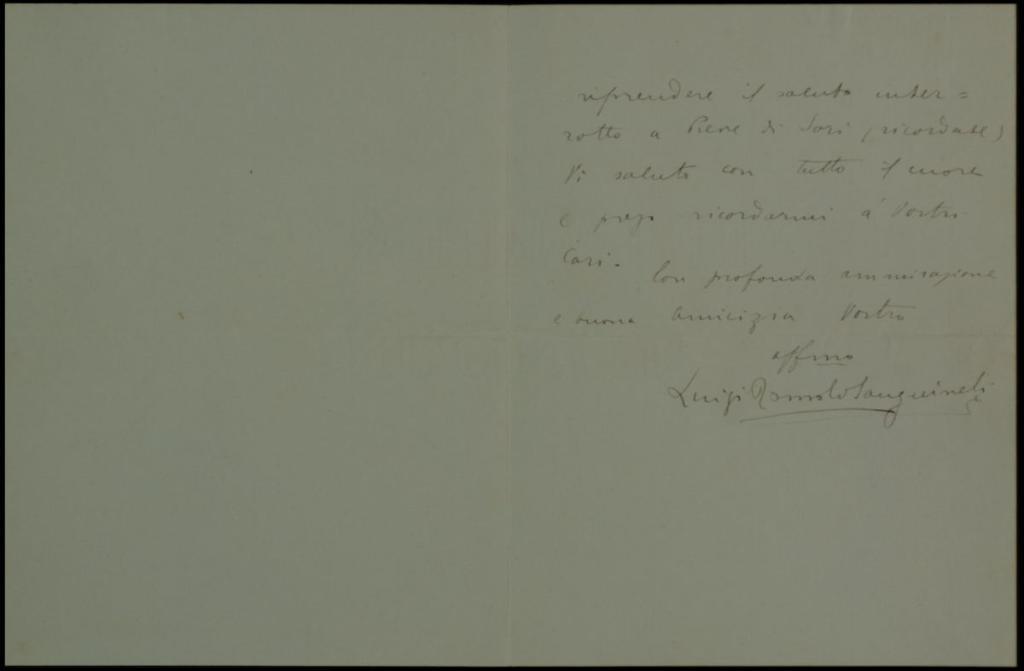 riprendere il saluto inter=
rotto a Pieve di Sori (ricordate)
Vi saluto con tutto il cuore
e prego ricordarmi a' Vostri
Cari. Con profonda ammirazione
e buona amicizia Vostro
affmo
Luigi Romolo Sanguineti